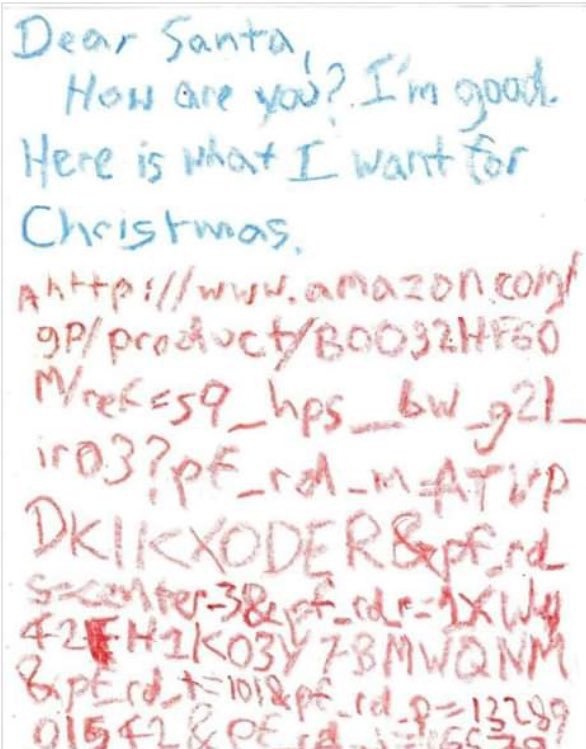 Dear Santa,
How are you? I'm good.
Here is what I want for
Christmas.
http://www.amazon.com/
gp/product/B0032HF60
M/ref=s9_hps_bw_g21_
ir03?pf_rd_m=ATVP
DKIKX0DER&pf_rd_
s=center-3&pf_rd_r=1XWW
42FH1K03Y7BMWQNM
&pf_rd_t=101&pf_rd_p=13289
01542&pf_rd_i=